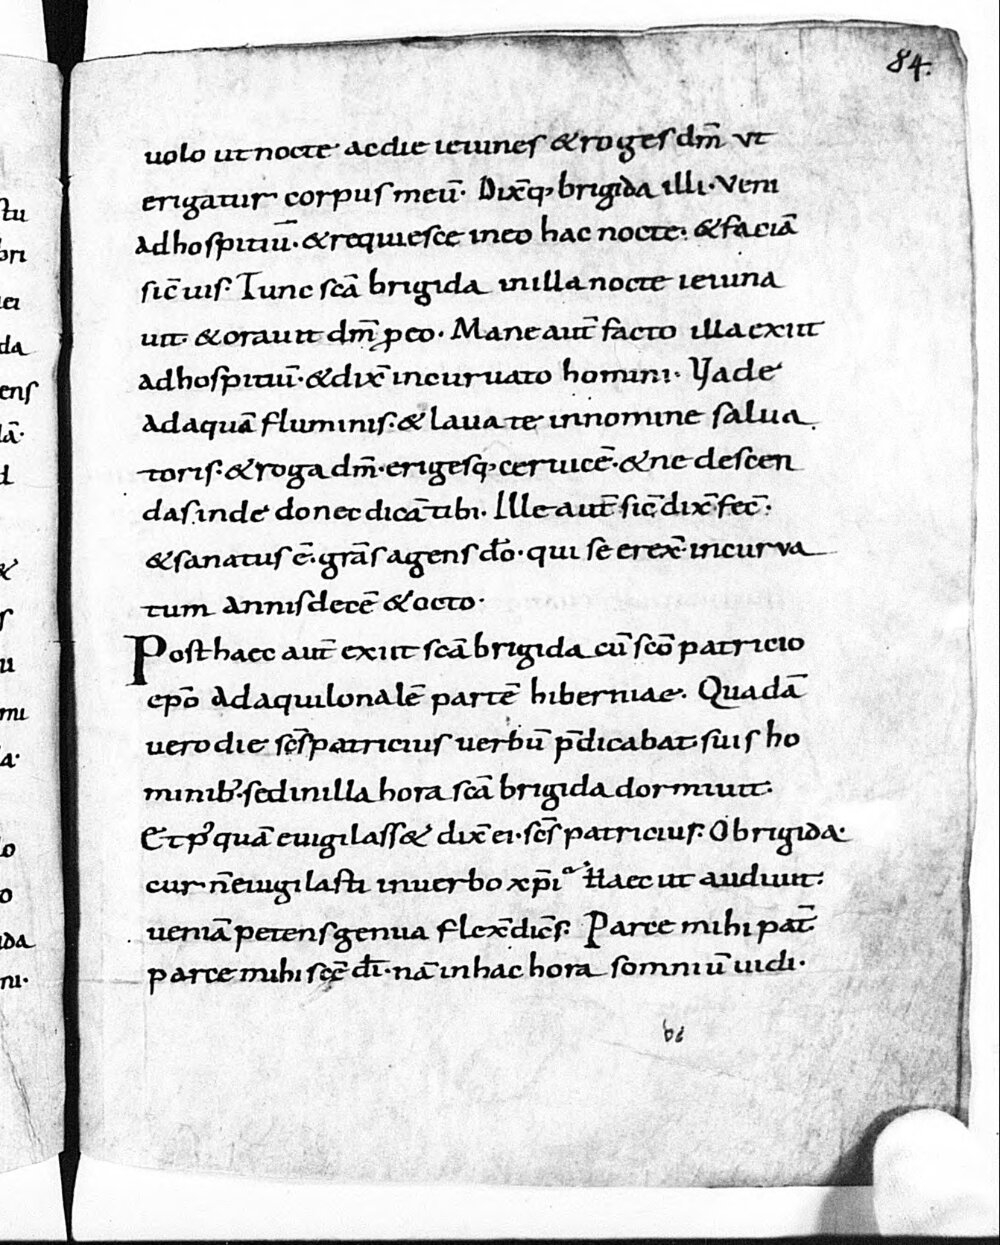 84.
uolo ut nocte ac die ieiunes & roges dm̄ vt
erigatur corpus meū. Dixq; brigida illi. Veni
ad hospitiū. & requiesce in eo hac nocte. & faciā
sic̄ uis. Tunc sc̄a brigida in illa nocte ieiuna
uit. & orauit dm̄ p eo. Mane aut̄ facto illa exiit
ad hospitiū. & dix̄ incuruato homini. Vade
ad aquā fluminis. & laua te in nomine salua
toris. & roga dm̄. erigesq; ceruicē. & ne descen
das inde donec dicā tibi. Ille aut̄ sic̄ dix̄ fec̄.
& sanatus ē. grās agens dō. qui se erex̄ incurva
tum annis decē & octo.
Post haec aut̄ exiit sc̄a brigida cū sc̄o patricio
ep̄o ad aquilonalē partē hiberniae. Quadā
uero die sc̄s patricius uerbū p̄dicabat suis ho
minib; sed in illa hora sc̄a brigida dormiuit.
Et p; quā euigilass& dix̄ ei sc̄s patricius. O brigida
cur n̄ euigilasti in uerbo xp̄i Haec ut audiuit.
ueniā petens genua flex̄ dic̄s. Parce mihi pat̄
parce mihi sc̄e dī. nā in hac hora somniū uidi.
tu
bri
ei
da
ens
lā.
d
&
s
u
mi
a.
lo
o
ida
ni.